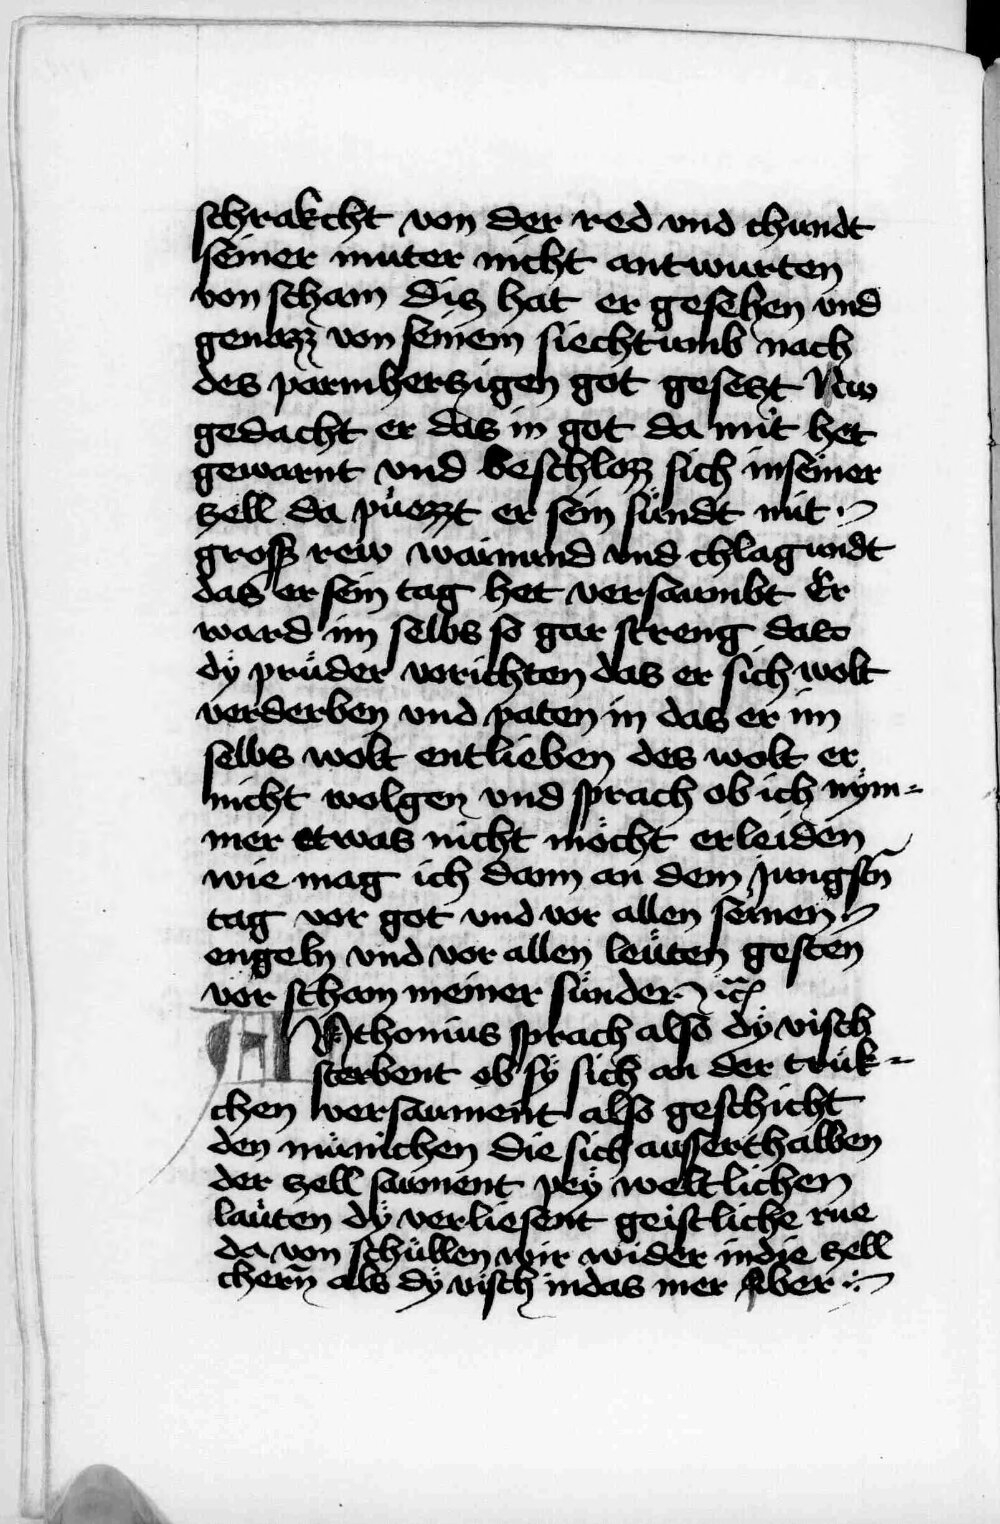 schrakcht von der red vnd chundt
seiner muter nicht antwurten
von scham dis hat er gesehen vnd
genazz von seinem siechtumb nach
des parmherczigen got gesetzt Nw
gedacht er das in got da mit het
gewarnt vnd beschlozz sich in seiner
zell da püezzt er sein sündt mit
gross rew wainund vnd chlagundt
das er sein tag het versaumbt Er
ward im selbs so gar streng das
dÿ prüder vorichten das er sich wolt
verderben vnd paten in das er im
selbs wolt entlieben des wolt er
nicht wolgen vnd sprach ob ich nÿm=
mer etwas nicht möcht erleiden
wie mag ich dann an dem jungsten
tag vor got vnd vor allen seinen
engeln vnd vor allen leüten gesten
vor scham meiner sünder
Anthonius sprach also dÿ visch
sterbent ob sÿ sich an der trük=
chen versaument also geschicht
den münichen die sich ausserthalben
der zell saument peÿ weltlichen
laüten dÿ verliesent geistliche rue
da von schüllen wir wider in die zell
chern als dÿ visch in das mer Aber